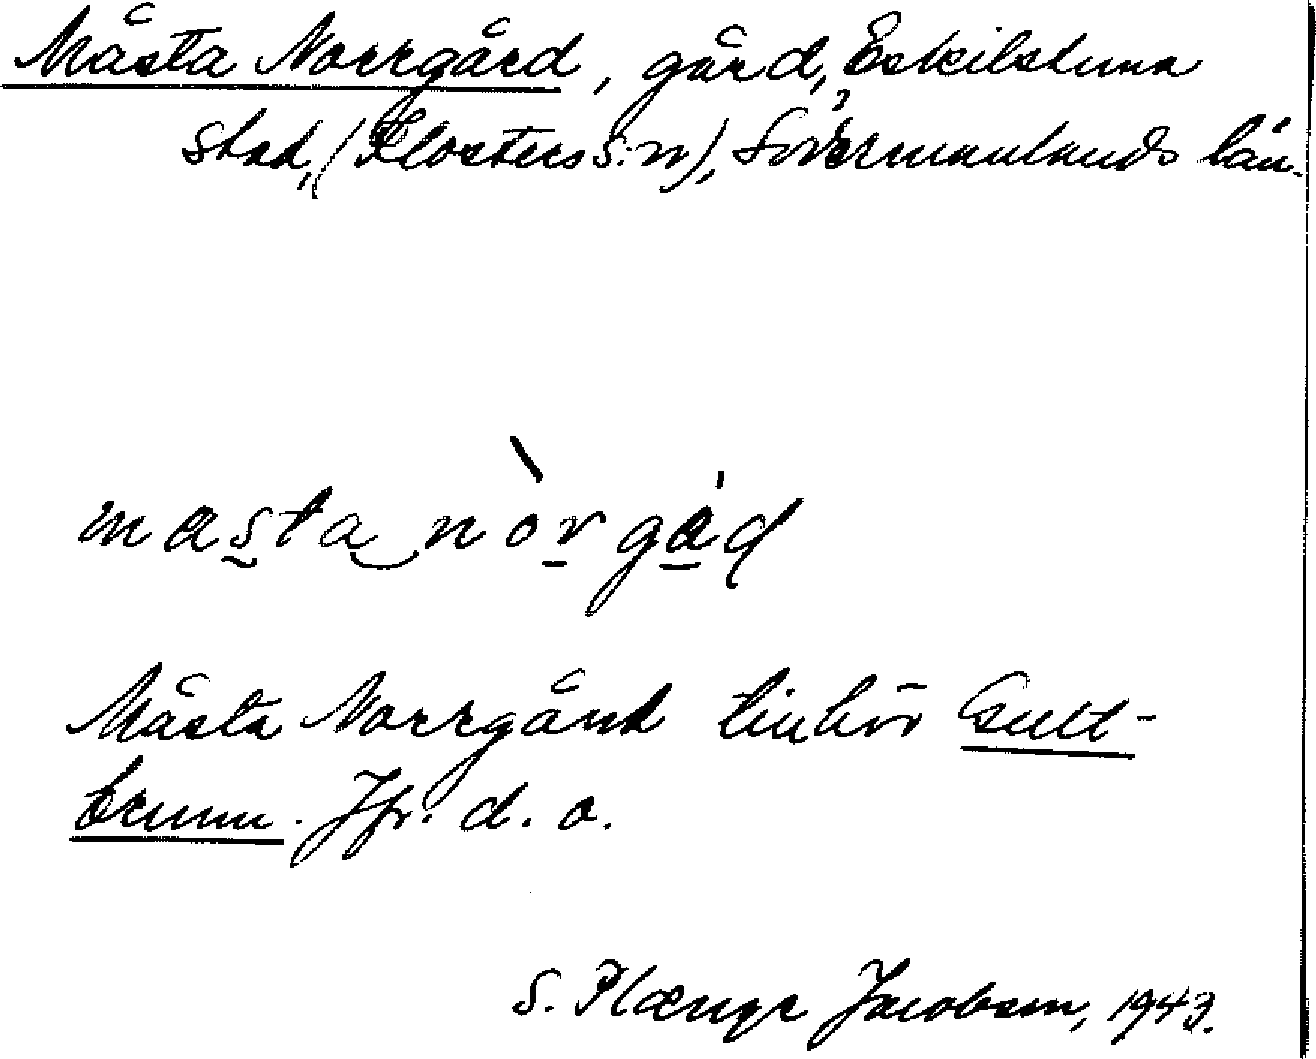 Måsta Norrgård, gård, Eskilstuna
stad, (Klosters s:n), Södermanlands län.
masta nòrgåd
Måsta Norrgård tillhör Gull-
brunn. Jfr. d. o.
S. Plænge Jacobsen, 1943.